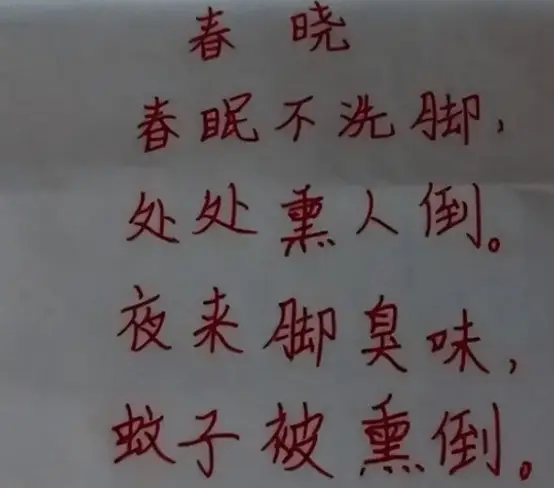 春晓
春眠不洗脚,
处处熏人倒。
夜来脚臭味,
蚊子被熏倒。